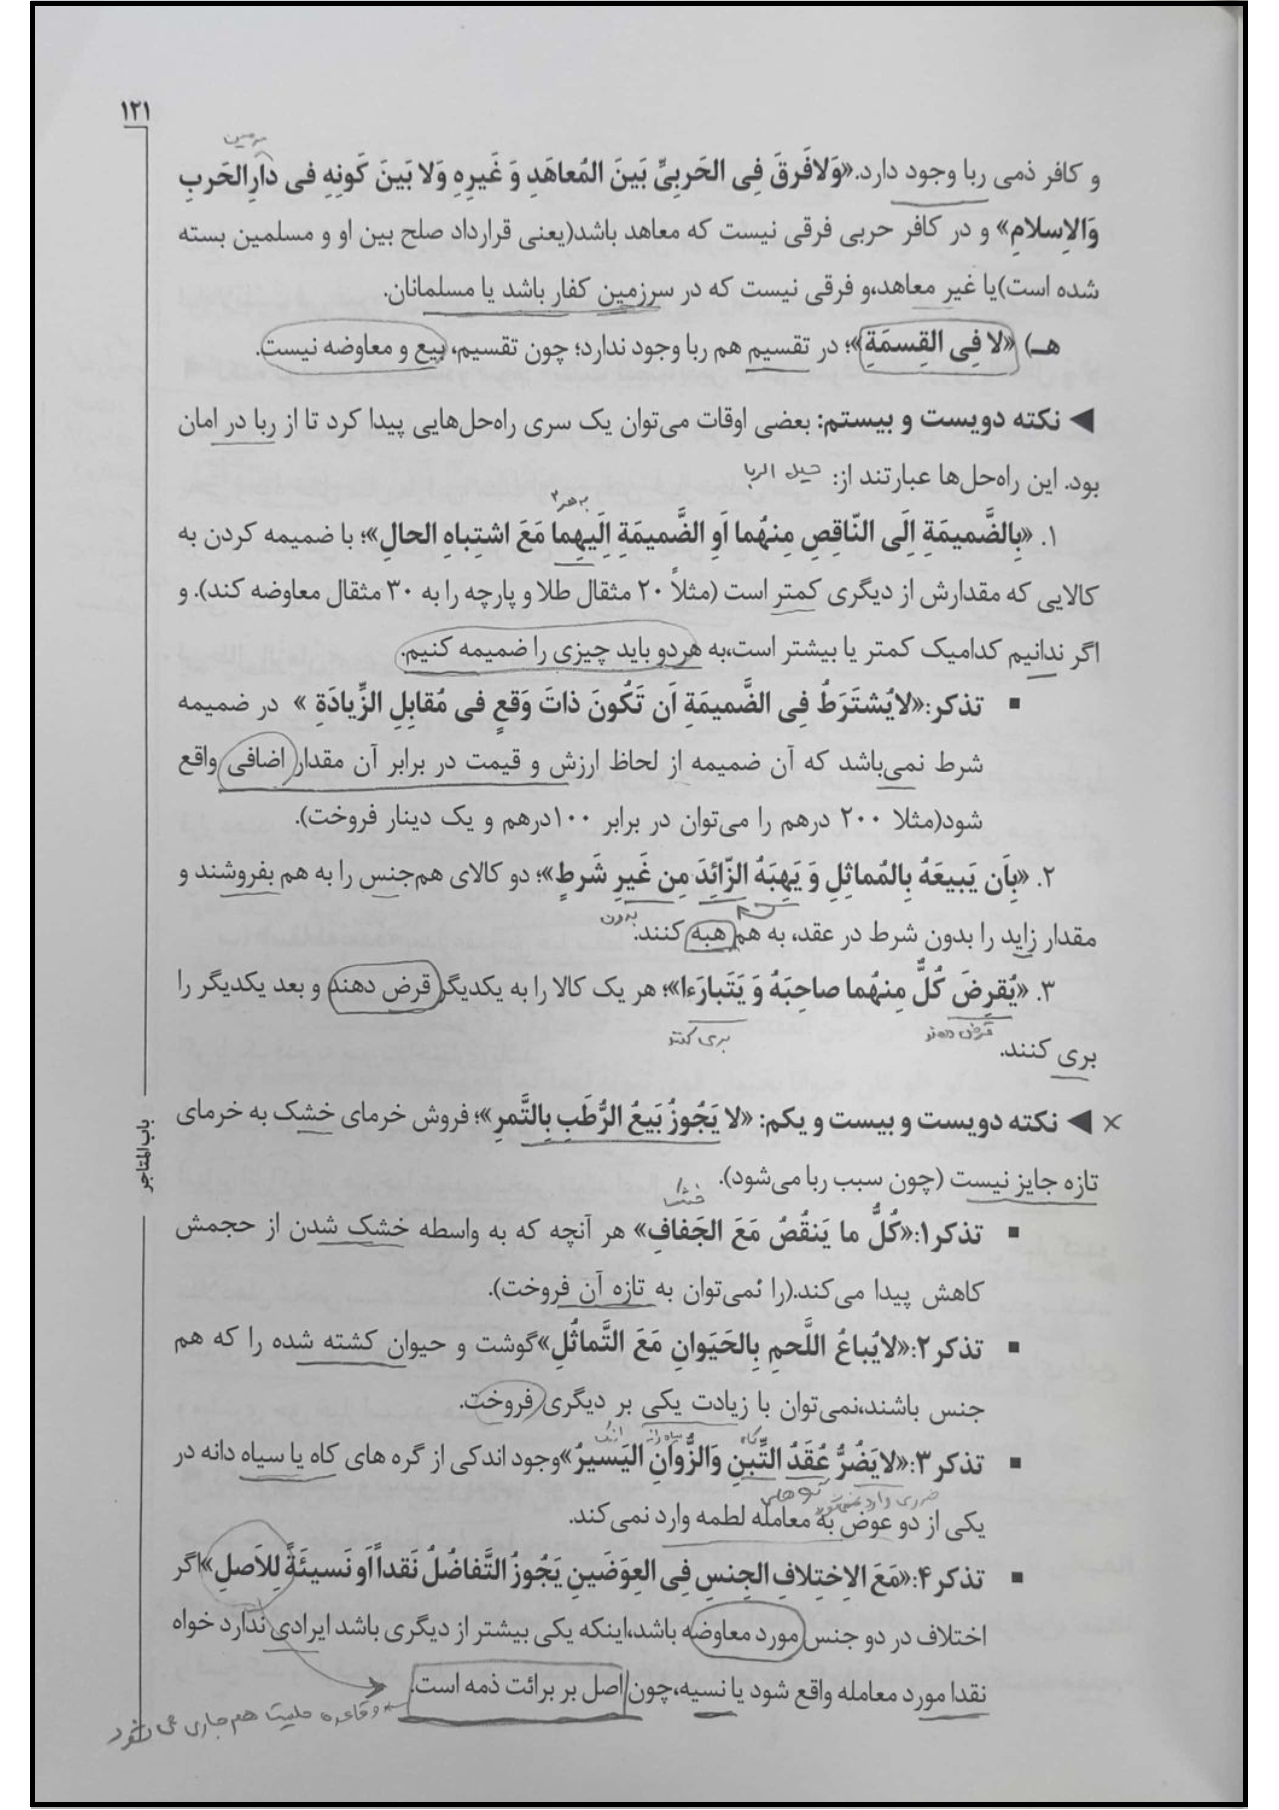 ۱۲۱
سرزمین
و کافر ذمی ربا وجود دارد.«وَلافَرقَ فِی الحَربِیِّ بَینَ المُعاهَدِ وَ غَیرِهِ وَلا بَینَ کَونِهِ فی دارِالحَربِ
وَالاِسلامِ» و در کافر حربی فرقی نیست که معاهد باشد(یعنی قرارداد صلح بین او و مسلمین بسته
شده است)یا غیر معاهد،و فرقی نیست که در سرزمین کفار باشد یا مسلمانان.
هـ) «لا فِی القِسمَةِ»؛ در تقسیم هم ربا وجود ندارد؛ چون تقسیم، بیع و معاوضه نیست.
◀ نکته دویست و بیستم: بعضی اوقات می‌توان یک سری راه‌حل‌هایی پیدا کرد تا از ربا در امان
بود. این راه‌حل‌ها عبارتند از: حیل الربا
به هر ۲
۱. «بِالضَّمیمَةِ اِلَی النّاقِصِ مِنهُما اَوِ الضَّمیمَةِ اِلَیهِما مَعَ اشتِباهِ الحالِ»؛ با ضمیمه کردن به
کالایی که مقدارش از دیگری کمتر است (مثلاً ۲۰ مثقال طلا و پارچه را به ۳۰ مثقال معاوضه کند). و
اگر ندانیم کدامیک کمتر یا بیشتر است،به هردو باید چیزی را ضمیمه کنیم.
▪ تذکر:«لایُشتَرَطُ فِی الضَّمیمَةِ اَن تَکُونَ ذاتَ وَقعٍ فی مُقابِلِ الزِّیادَةِ » در ضمیمه
شرط نمی‌باشد که آن ضمیمه از لحاظ ارزش و قیمت در برابر آن مقدار اضافی واقع
شود(مثلا ۲۰۰ درهم را می‌توان در برابر ۱۰۰درهم و یک دینار فروخت).
۲. «بِاَن یَبیعَهُ بِالمُماثِلِ وَ یَهِبَهُ الزّائِدَ مِن غَیرِ شَرطٍ»؛ دو کالای هم‌جنس را به هم بفروشند و
بدون
مقدار زاید را بدون شرط در عقد، به هم هبه کنند.
۳. «یُقرِضَ کُلٌّ مِنهُما صاحِبَهُ وَ یَتَبارَءا»؛ هر یک کالا را به یکدیگر قرض دهند و بعد یکدیگر را
قرض دهند بری کنند
بری کنند.
× ◀ نکته دویست و بیست و یکم: «لا یَجُوزُ بَیعُ الرُّطَبِ بِالتَّمرِ»؛ فروش خرمای خشک به خرمای
تازه جایز نیست (چون سبب ربا می‌شود).
▪ تذکر۱:«کُلُّ ما یَنقُصُ مَعَ الجَفافِ» هر آنچه که به واسطه خشک شدن از حجمش
کاهش پیدا می‌کند.(را نمی‌توان به تازه آن فروخت).
▪ تذکر۲:«لایُباعُ اللَّحمِ بِالحَیَوانِ مَعَ التَّماثُلِ»گوشت و حیوان کشته شده را که هم
جنس باشند،نمی‌توان با زیادت یکی بر دیگری فروخت.
کاه سیاه دانه اندک
▪ تذکر۳:«لایَضُرُّ عُقَدُ التِّبنِ وَالزُّوانِ الیَسیرُ»وجود اندکی از گره های کاه یا سیاه دانه در
یکی از دو عوض به معامله لطمه وارد نمی‌کند.
▪ تذکر۴:«مَعَ الاِختِلافِ الجِنسِ فِی العِوَضَینِ یَجُوزُ التَّفاضُلُ نَقداً اَو نَسیئَةً لِلاَصلِ»اگر
اختلاف در دو جنس مورد معاوضه باشد،اینکه یکی بیشتر از دیگری باشد ایرادی ندارد خواه
نقدا مورد معامله واقع شود یا نسیه،چون اصل بر برائت ذمه است.
و قاعده حلیت هم جاری می شود
باب المتاجر